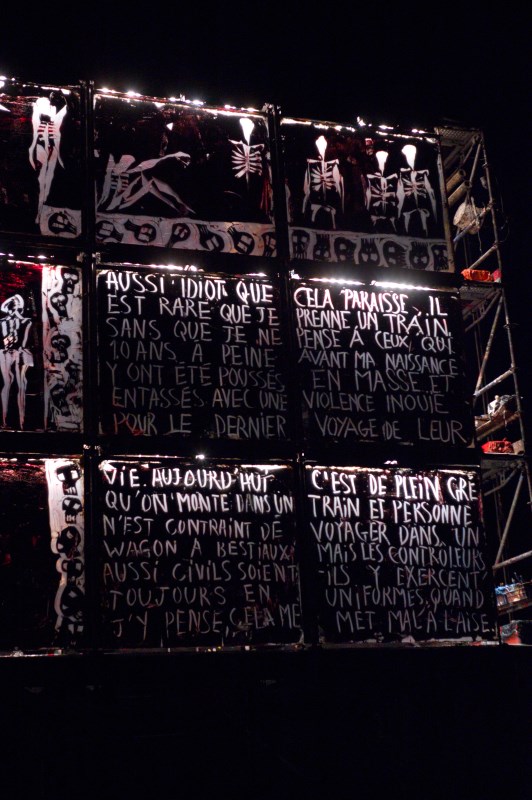 AUSSI IDIOT QUE CELA PARAISSE, IL
EST RARE QUE JE PRENNE UN TRAIN,
SANS QUE JE NE PENSE A CEUX, QUI
10 ANS A PEINE AVANT MA NAISSANCE
Y ONT ÉTÉ POUSSÉS EN MASSE ET
ENTASSÉS AVEC UNE VIOLENCE INOUIE
POUR LE DERNIER VOYAGE DE LEUR
VIE. AUJOURD'HUI C'EST DE PLEIN GRÉ
QU'ON MONTE DANS UN TRAIN ET PERSONNE
N'EST CONTRAINT DE VOYAGER DANS UN
WAGON A BESTIAUX MAIS LES CONTROLEURS
AUSSI CIVILS SOIENT ILS Y EXERCENT
TOUJOURS EN UNIFORMES, QUAND
J'Y PENSE, CELA ME MET MAL A L'AISE.